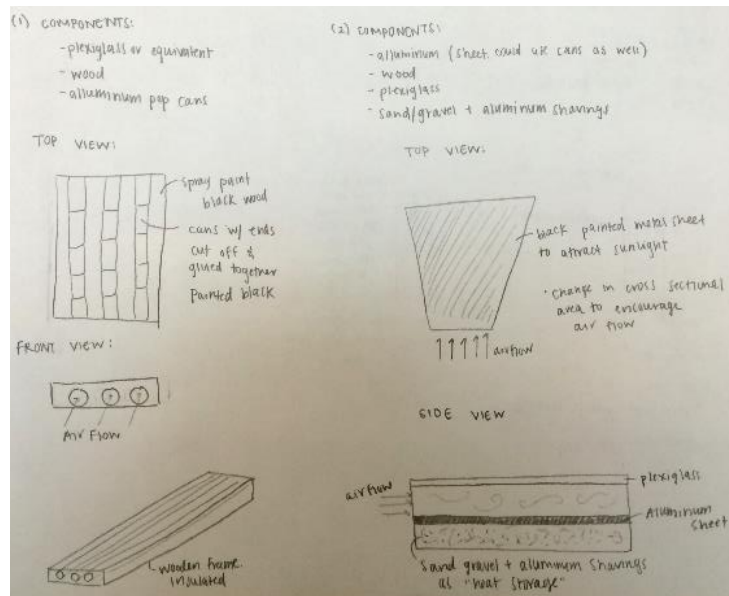 (1) COMPONENTS:
- plexiglass or equivalent
- wood
- alluminum pop cans
TOP VIEW:
spray paint
black wood
cans w/ ends
cut off &
glued together
Painted black
FRONT VIEW:
Air Flow
wooden frame
insulated
(2) COMPONENTS:
- alluminum (sheet could use cans as well)
- wood
- plexiglass
- sand/gravel + aluminum shavings
TOP VIEW:
black painted metal sheet
to attract sunlight
• change in cross sectional
area to encourage
air flow
airflow
SIDE VIEW
airflow
plexiglass
Aluminum
sheet
sand gravel + aluminum shavings
as "heat storage"